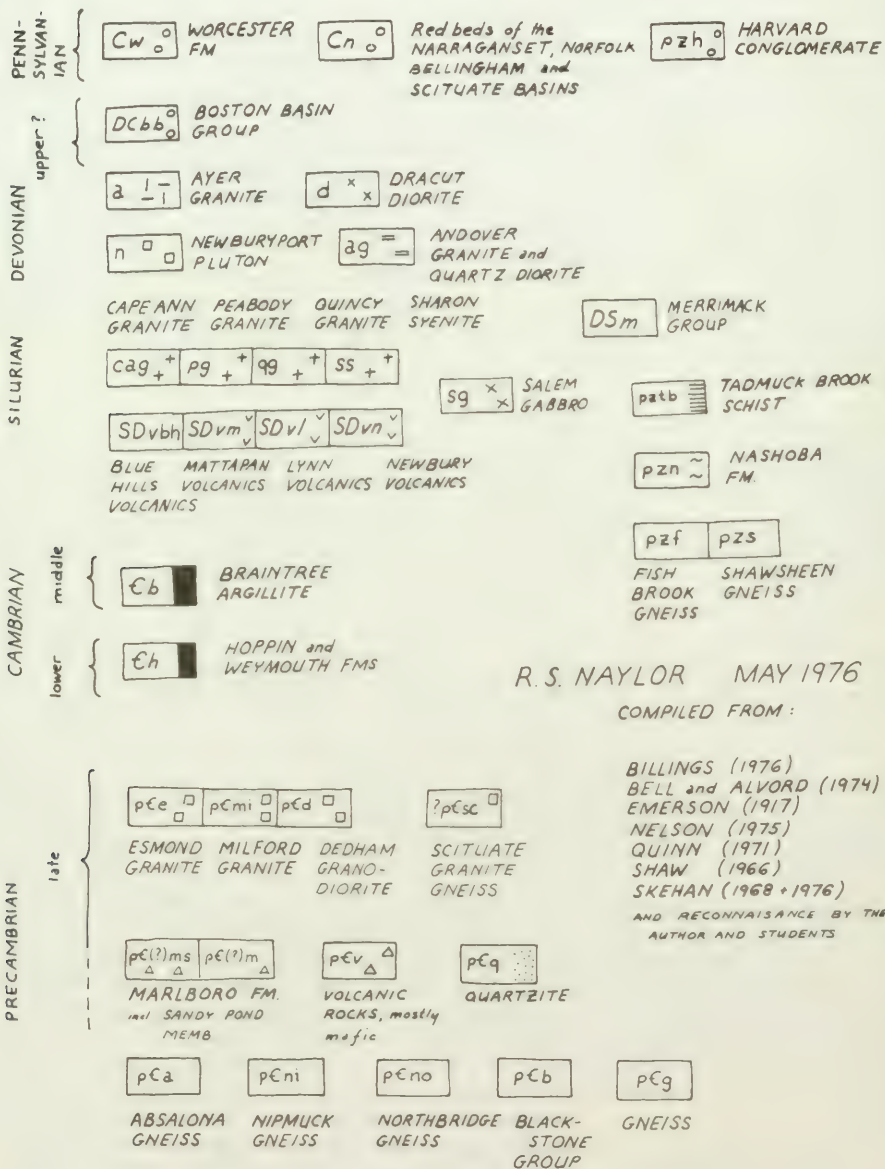 PENN-
SYLVAN-
IAN
Cw
WORCESTER
FM
Cn
Red beds of the
NARRAGANSET, NORFOLK
BELLINGHAM and
SCITUATE BASINS
pzh
HARVARD
CONGLOMERATE
upper ?
DCbb
BOSTON BASIN
GROUP
DEVONIAN
a
AYER
GRANITE
d
DRACUT
DIORITE
n
NEWBURYPORT
PLUTON
ag
ANDOVER
GRANITE and
QUARTZ DIORITE
CAPE ANN
GRANITE
PEABODY
GRANITE
QUINCY
GRANITE
SHARON
SYENITE
DSm
MERRIMACK
GROUP
SILURIAN
cag
pg
qg
ss
sg
SALEM
GABBRO
patb
TADMUCK BROOK
SCHIST
SDvbh
SDvm
SDvl
SDvn
BLUE
HILLS
VOLCANICS
MATTAPAN
VOLCANICS
LYNN
VOLCANICS
NEWBURY
VOLCANICS
pzn
NASHOBA
FM.
pzf
pzs
FISH
BROOK
GNEISS
SHAWSHEEN
GNEISS
CAMBRIAN
middle
Єb
BRAINTREE
ARGILLITE
lower
Єh
HOPPIN and
WEYMOUTH FMS
R.S. NAYLOR MAY 1976
COMPILED FROM :
BILLINGS (1976)
BELL and ALVORD (1974)
EMERSON (1917)
NELSON (1975)
QUINN (1971)
SHAW (1966)
SKEHAN (1968 + 1976)
AND RECONNAISANCE BY THE
AUTHOR AND STUDENTS
PRECAMBRIAN
late
pЄe
pЄmi
pЄd
?pЄsc
ESMOND
GRANITE
MILFORD
GRANITE
DEDHAM
GRANO-
DIORITE
SCITUATE
GRANITE
GNEISS
pЄ(?)ms
pЄ(?)m
pЄv
pЄq
MARLBORO FM.
incl SANDY POND
MEMB
VOLCANIC
ROCKS, mostly
mafic
QUARTZITE
pЄa
pЄni
pЄno
pЄb
pЄg
ABSALONA
GNEISS
NIPMUCK
GNEISS
NORTHBRIDGE
GNEISS
BLACK-
STONE
GROUP
GNEISS